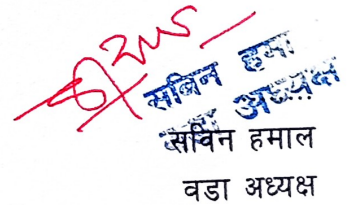 सबिन हमा
अध्यक्ष
सविन हमाल
वडा अध्यक्ष